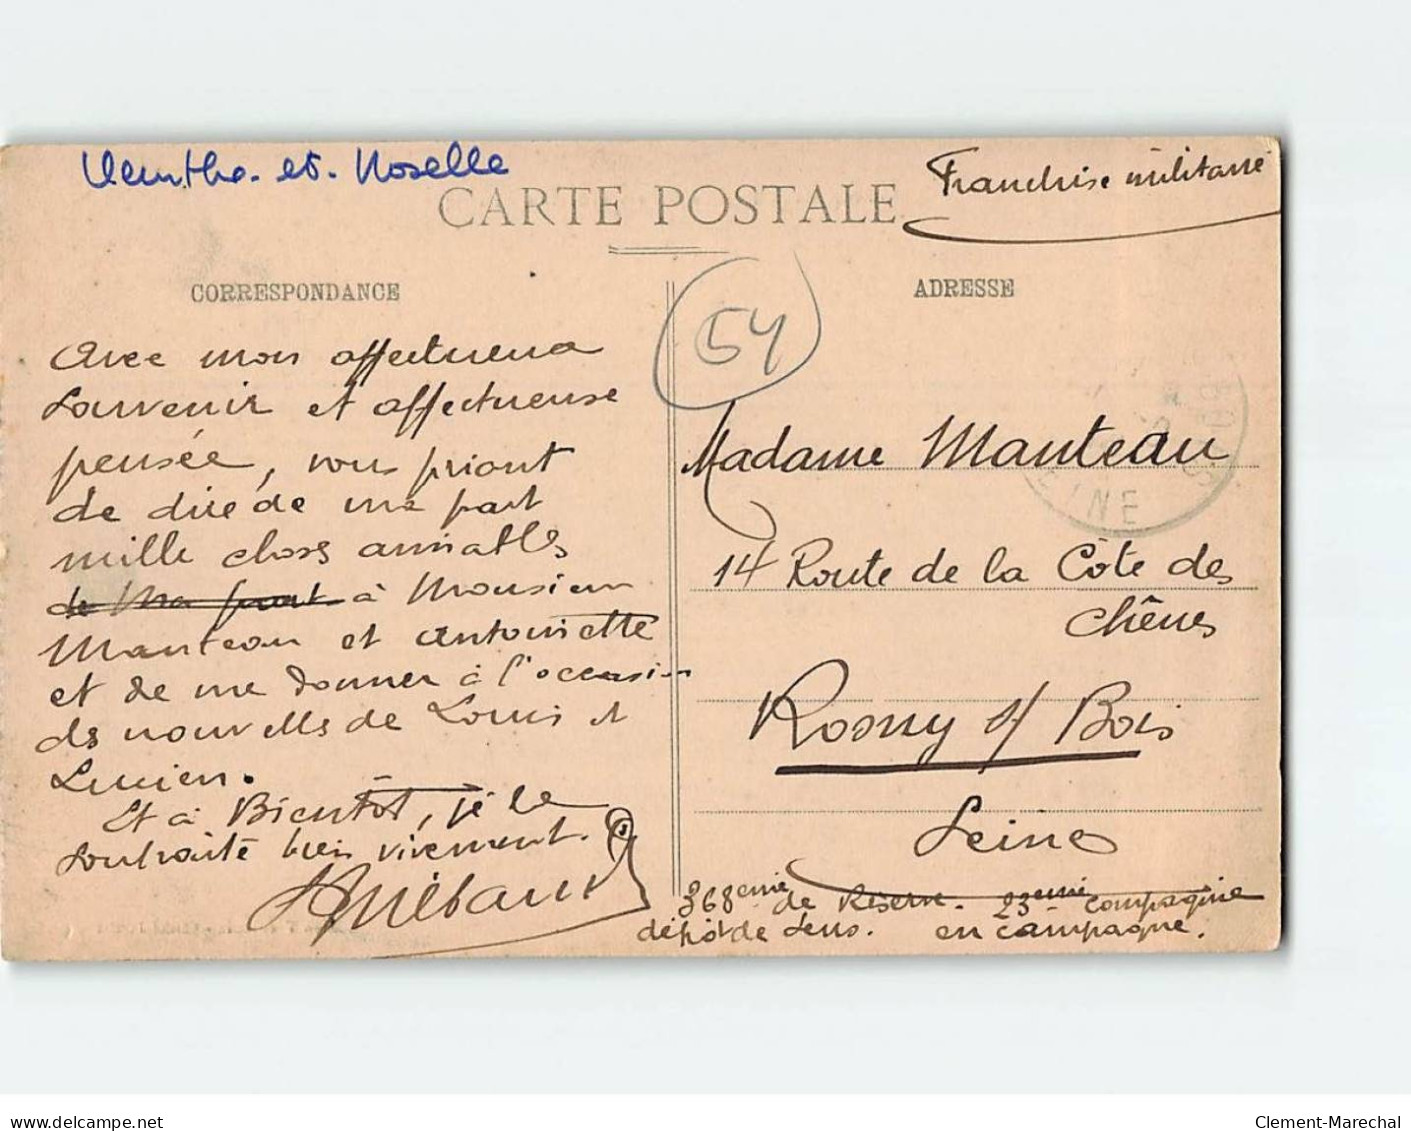 Meurthe. et. Moselle
Franchise militaire
CARTE POSTALE
CORRESPONDANCE
ADRESSE
54
Avec mon affectueux
Souvenir et affectueuse
pensée, vous priant
de dire de ma part
mille choses aimables
de ma part à Monsieur
Manteau et Antoinette
et de me donner à l'occasion
des nouvelles de Louis et
Lucien.
Et à Bientôt, je le
souhaite bien vivement.
Madame Manteau
14 Route de la Côte des
Chênes
Rosny s/ Bois
Seine
368eme de Réserve. 23eme compagnie
dépôt de Sens. en campagne.
SEINE
delcampe.net
Clement-Marechal